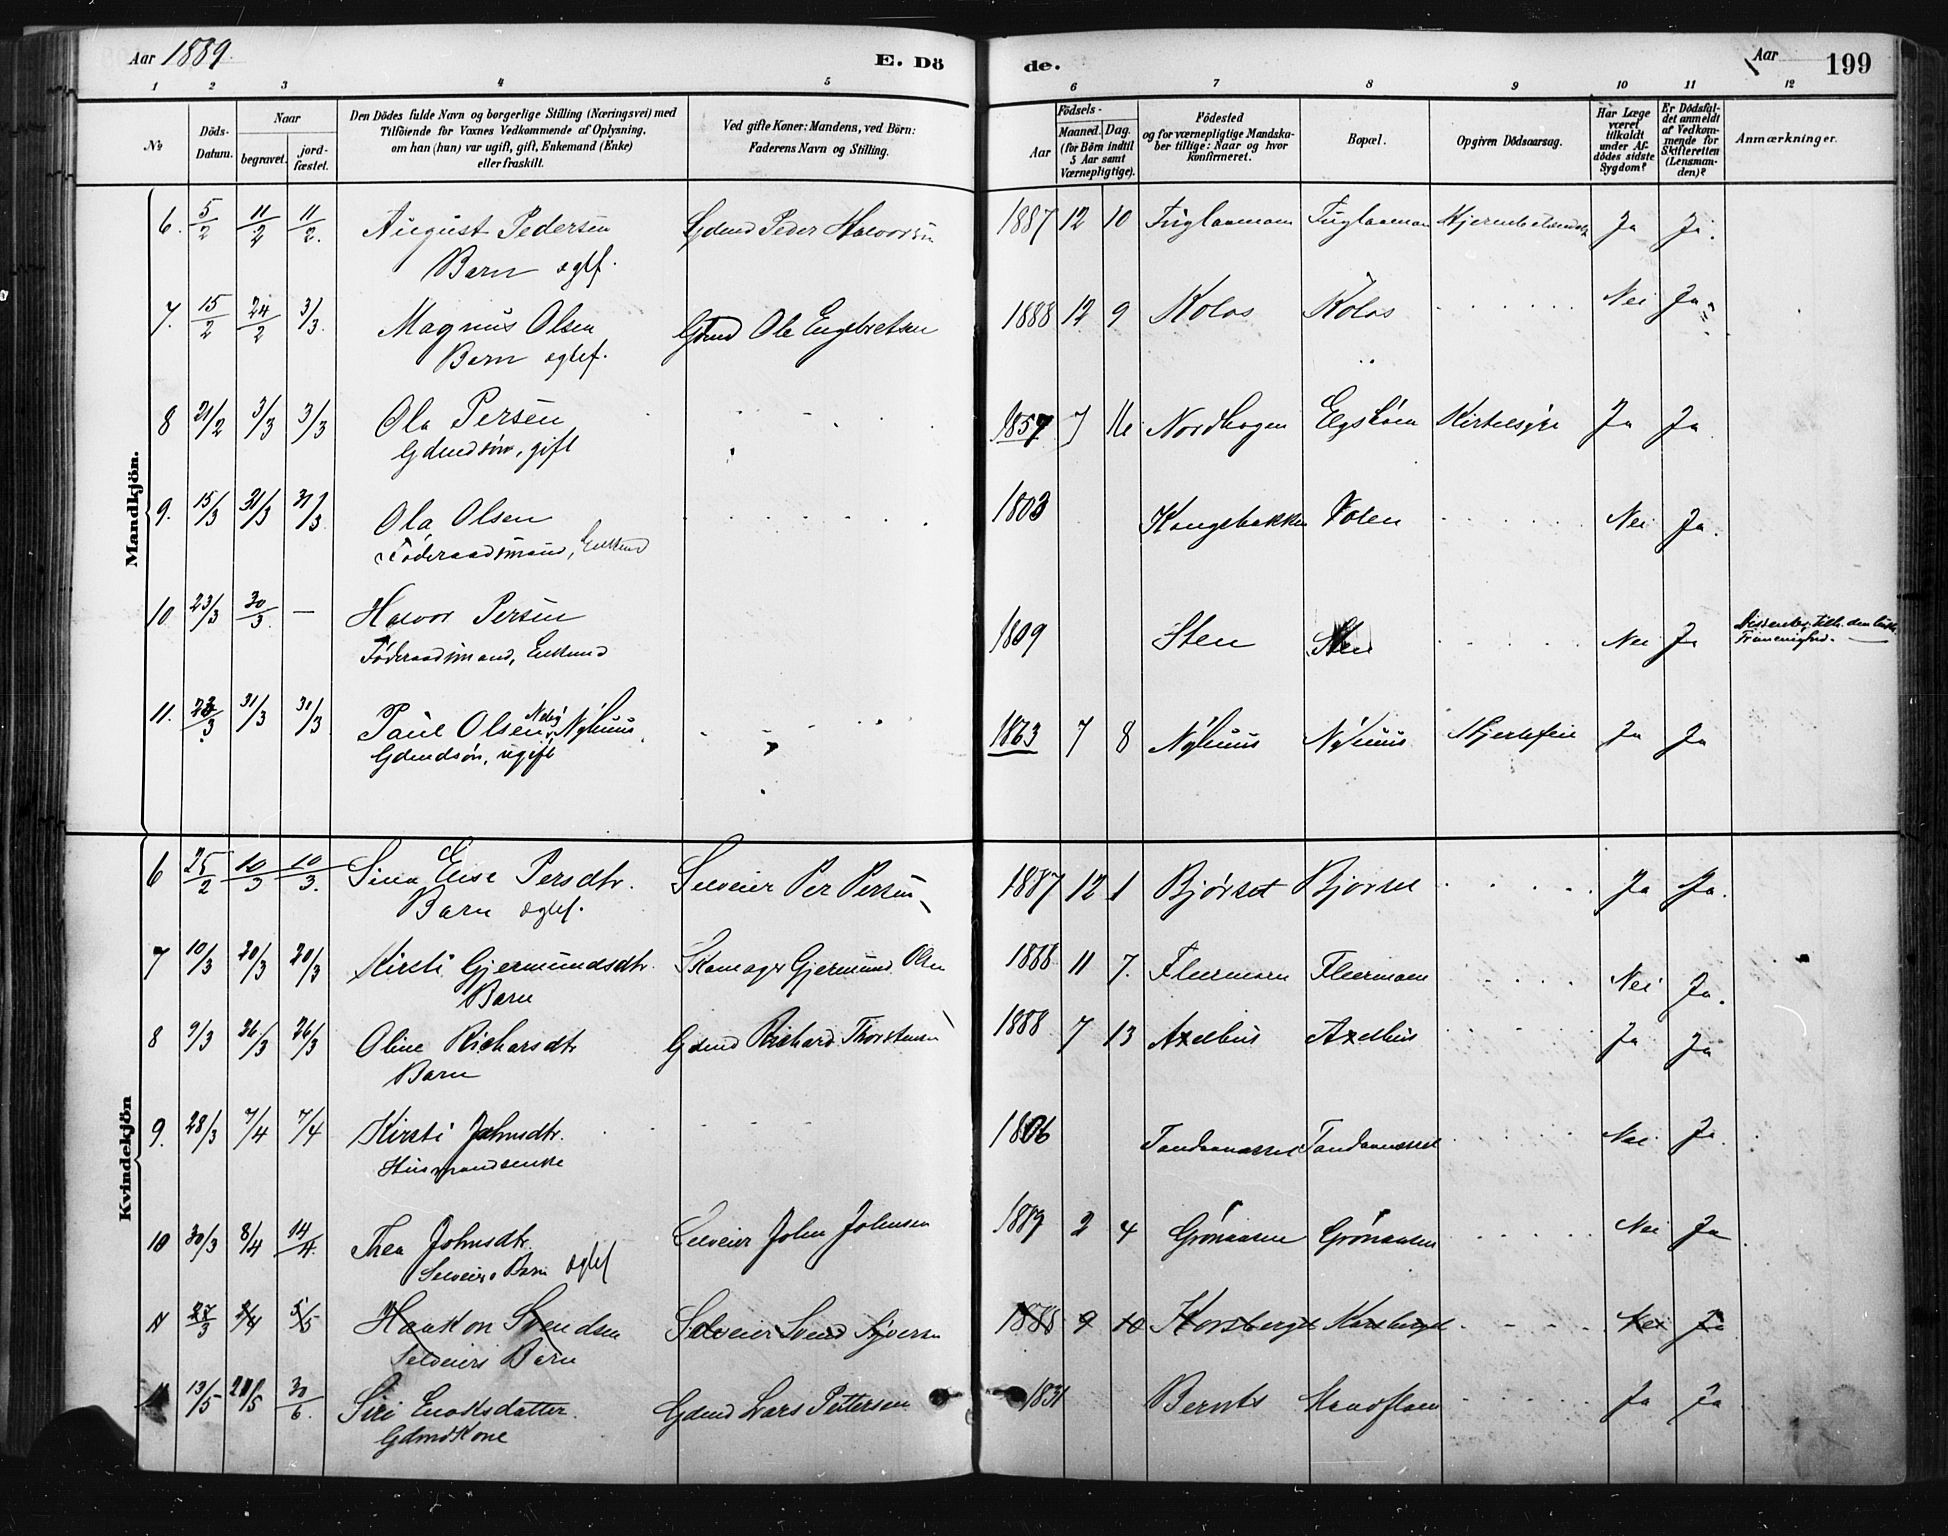 Aar 1889.
E. Dö
de.
Aar
199
1 2 3 4 5 6 7 8 9 10 11 12
No
Döds-Datum.
Naar
begravet.
jord-fæstet.
Den Dödes fulde Navn og borgerlige Stilling (Næringsvei) med
Tilföiende for Voxnes Vedkommende af Oplysning,
om han (hun) var ugift, gift, Enkemand (Enke)
eller fraskilt.
Ved gifte Koner: Mandens, ved Börn:
Faderens Navn og Stilling.
Födsels-
Aar
Maaned. Dag.
(for Börn indtil
5 Aar samt
Værnepligtige).
Födested
og for værnepligtige Mandska-
ber tillige: Naar og hvor
konfirmeret.
Bopæl.
Opgiven Dödsaarsag.
Har Læge
været
tilkaldt
under Af-
dödes sidste
Sygdom?
Er Dödsfal-
det anmeldt
af Vedkom-
mende for
Skifteretten
(Lensman-
den)?
Anmærkninger.
Mandkjön.
6. 5/2 11/2 11/2. August Pedersen Gdmd Peder Halvorsen 1887 12 10 Ja Ja.
Barn ogtf.
7. 15/2 24/2 3/3. Magnus Olsen Gdmd Ole Engebretsen 1888 12 9 Kolos Kolos Nei Ja
Barn ogtef.
8 21/2 3/3 3/3 Ola Persen 1857 7 16 Nordhagen Kirtelsyge Ja Ja
Gdmdsön, gift
9. 15/3 31/3 31/3 Ola Olsen 1803 Kongsbakken Volen Nei Ja.
Föderaadsmand, Enkmd
10 23/3 30/3 — Halvor Persen 1809 Sten Sten Nei Ja
Föderaadsmand, Enkmd
11. 23/3 31/3 31/3 Paul Olsen Nyhuus 1863 7 8 Nyhuus Nyhuus Hjertefeil Ja Ja
Gdmdsön, ugift
Kvindekjön
6 25/2 10/3 10/3. Sina Elise Persdtr. Selveier Per Persen 1887 12 1 Bjørset Bjørset Ja Ja.
Barn ogtef.
7 10/3 20/3 20/3 Kirsti Gjermundsdtr. Skomager Gjermund Olsen 1888 11 7. Nei Ja.
Barn
8 9/3 26/3 26/3 Oline Richarsdtr Gdmd Richard Thorstensen 1888 7 13 Axelhus Axelhus Ja Ja
Barn
9. 28/3 7/4 7/4 Kirsti Johnsdtr. 1806 Nei Ja
Husmandsenke
10 30/3 8/4 14/4. Thea Johnsdtr. Selveier John Johnsen 1889 2 4 Grønaasen Grønaasen Nei Ja
Selveiers Barn ogtef
11 27/3 2/4 5/5 Haakon Svendsen Selveier Svend Syversen 1888 9 10 Korsberget Korsberget Nei Ja
Selveiers Barn
11 13/5 21/5 30/6. Siri Enoksdatter Gdmd Lars Pettersen 1831 Bernts Ja Ja
Gdmdkone